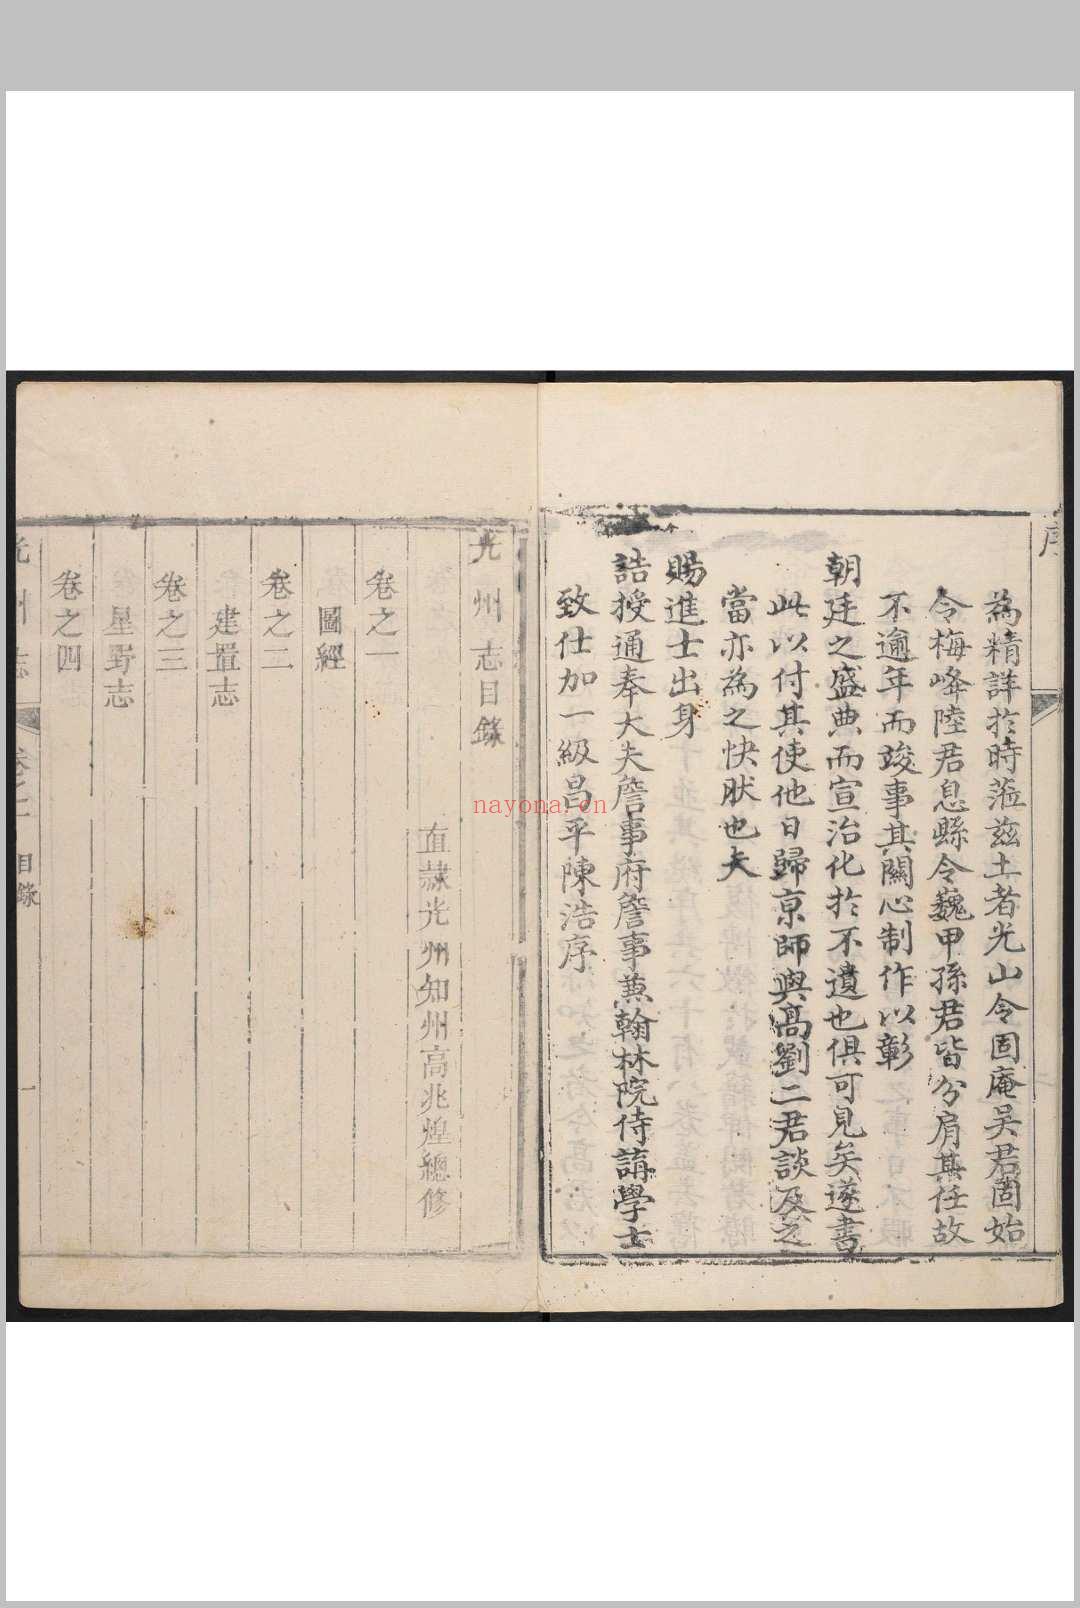 序
為精詳於時蒞兹土者光山令固庵吴君固始
令梅峰陸君息縣令巍甲孫君皆分肩其任故
不逾年而竣事其關心制作以彰
朝廷之盛典而宣治化於不遺也俱可見矣遂書
此以付其使他日歸京師與高劉二君談及之
當亦為之快肰也夫
賜進士出身
誥授通奉大夫詹事府詹事兼翰林院侍講學士
致仕加一級昌平陳浩序
光州志目錄
直隷光州知州高兆煌總修
卷之一
圖經
卷之二
建置志
卷之三
星野志
卷之四
光州志 卷之一 目錄 一
nayona.cn